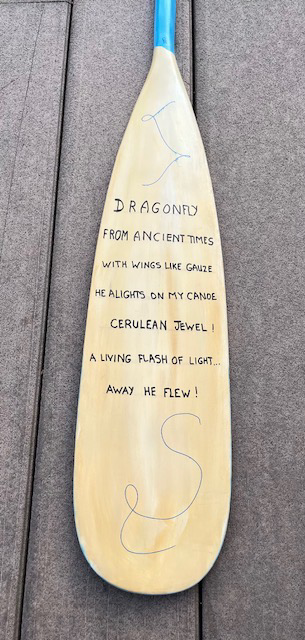 DRAGONFLY
FROM ANCIENT TIMES
WITH WINGS LIKE GAUZE
HE ALIGHTS ON MY CANOE
CERULEAN JEWEL!
A LIVING FLASH OF LIGHT...
AWAY HE FLEW!